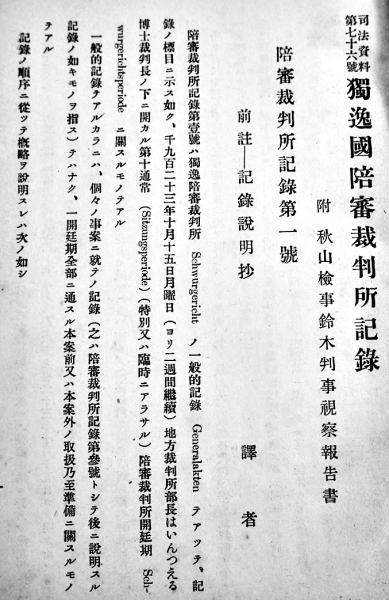 司法資料
第七十六號
獨逸國陪審裁判所記錄
附 秋山檢事鈴木判事視察報告書
陪審裁判所記錄第一號
前註―記錄說明抄
譯者
陪審裁判所記錄第壹號ハ獨逸陪審裁判所 Schwurgericht ノ一般的記錄 Generalakten テアツテ、記
錄ノ標目ニ示ス如ク、千九百二十三年十月十五日月曜日(ヨリ二週間繼續)地方裁判所部長はいんつえる
博士裁判長ノ下ニ開カル第十通常 (Sitzungsperiode) (特別又ハ臨時ニアラサル) 陪審裁判所開廷期 Sch-
wurgerichtsperiode ニ關スルモノテアル
一般的記錄テアルカラニハ、個々ノ事案ニ就テノ記錄 (之ハ陪審裁判所記錄第參號トシテ後ニ說明スル
記錄ノ如キモノヲ指ス) テハナク、一開廷期全部ニ通スル本案前又ハ本案外ノ取扱乃至準備ニ關スルモノ
テアル
記錄ノ順序ニ從ツテ槪略ヲ說明スレハ次ノ如シ